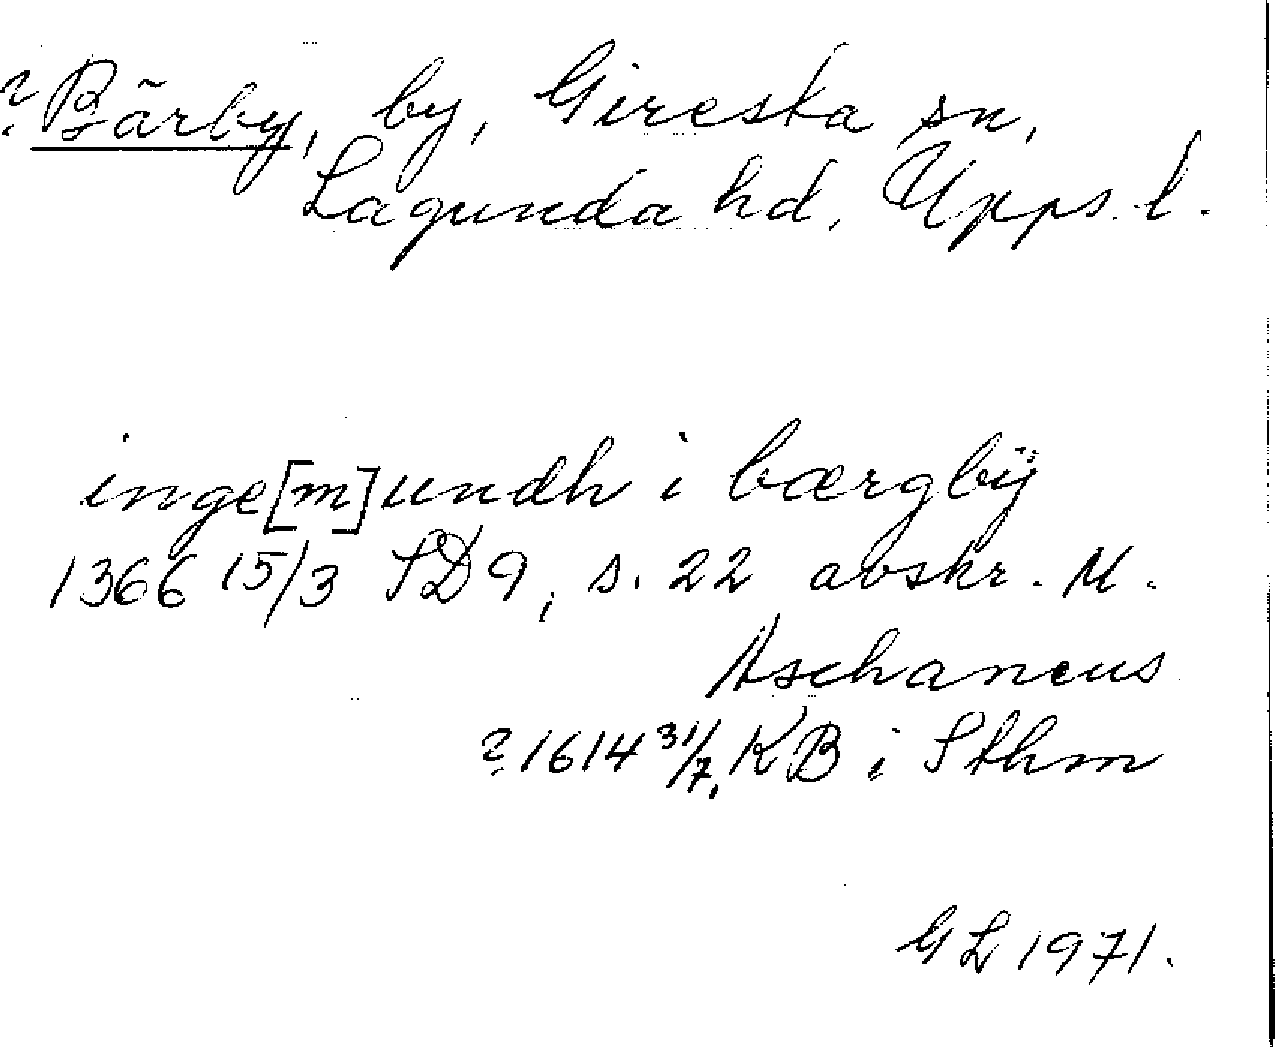 ? Bärby, by, Giresta sn,
Lagunda hd, Upps. l.
inge[m]undh i bærgbÿ
1366 15/3 SD 9, s. 22 avskr. M.
Aschaneus
? 1614 31/7, KB i Sthm
GL 1971.